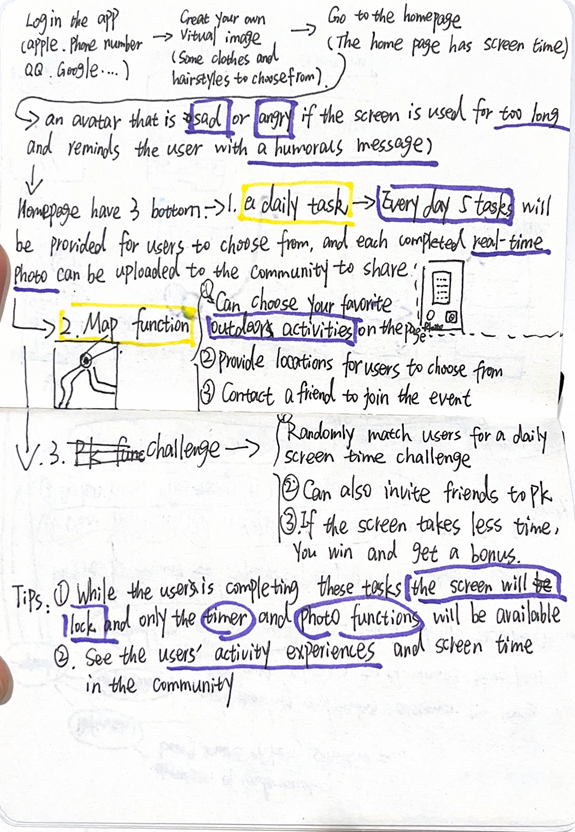 Log in the app
(apple. Phone number
QQ. Google....)
→ Creat your own
Vitual image
(Some clothes and
hairstyles to choose from).
→ Go to the homepage
(The home page has screen time)
→ an avatar that is sad or angry if the screen is used for too long
and reminds the user with a humorals message)
Homepage have 3 bottom:→1. a daily task → Every day 5 tasks will
be provided for users to choose from, and each completed real-time
Photo can be uploaded to the community to share.
→ 2. Map function
① Can choose your favorite
outdoors activities on the page.
② Provide locations for users to choose from
③ Contact a friend to join the event
3. Pk func challenge →
① Randomly match users for a daily
screen time challenge
② Can also invite friends to pk
③. If the screen takes less time,
You win and get a bonus.
Tips: ① While the users is completing these tasks the screen will be
lock and only the timer and photo functions will be available
②. See the users' activity experiences and screen time
in the community